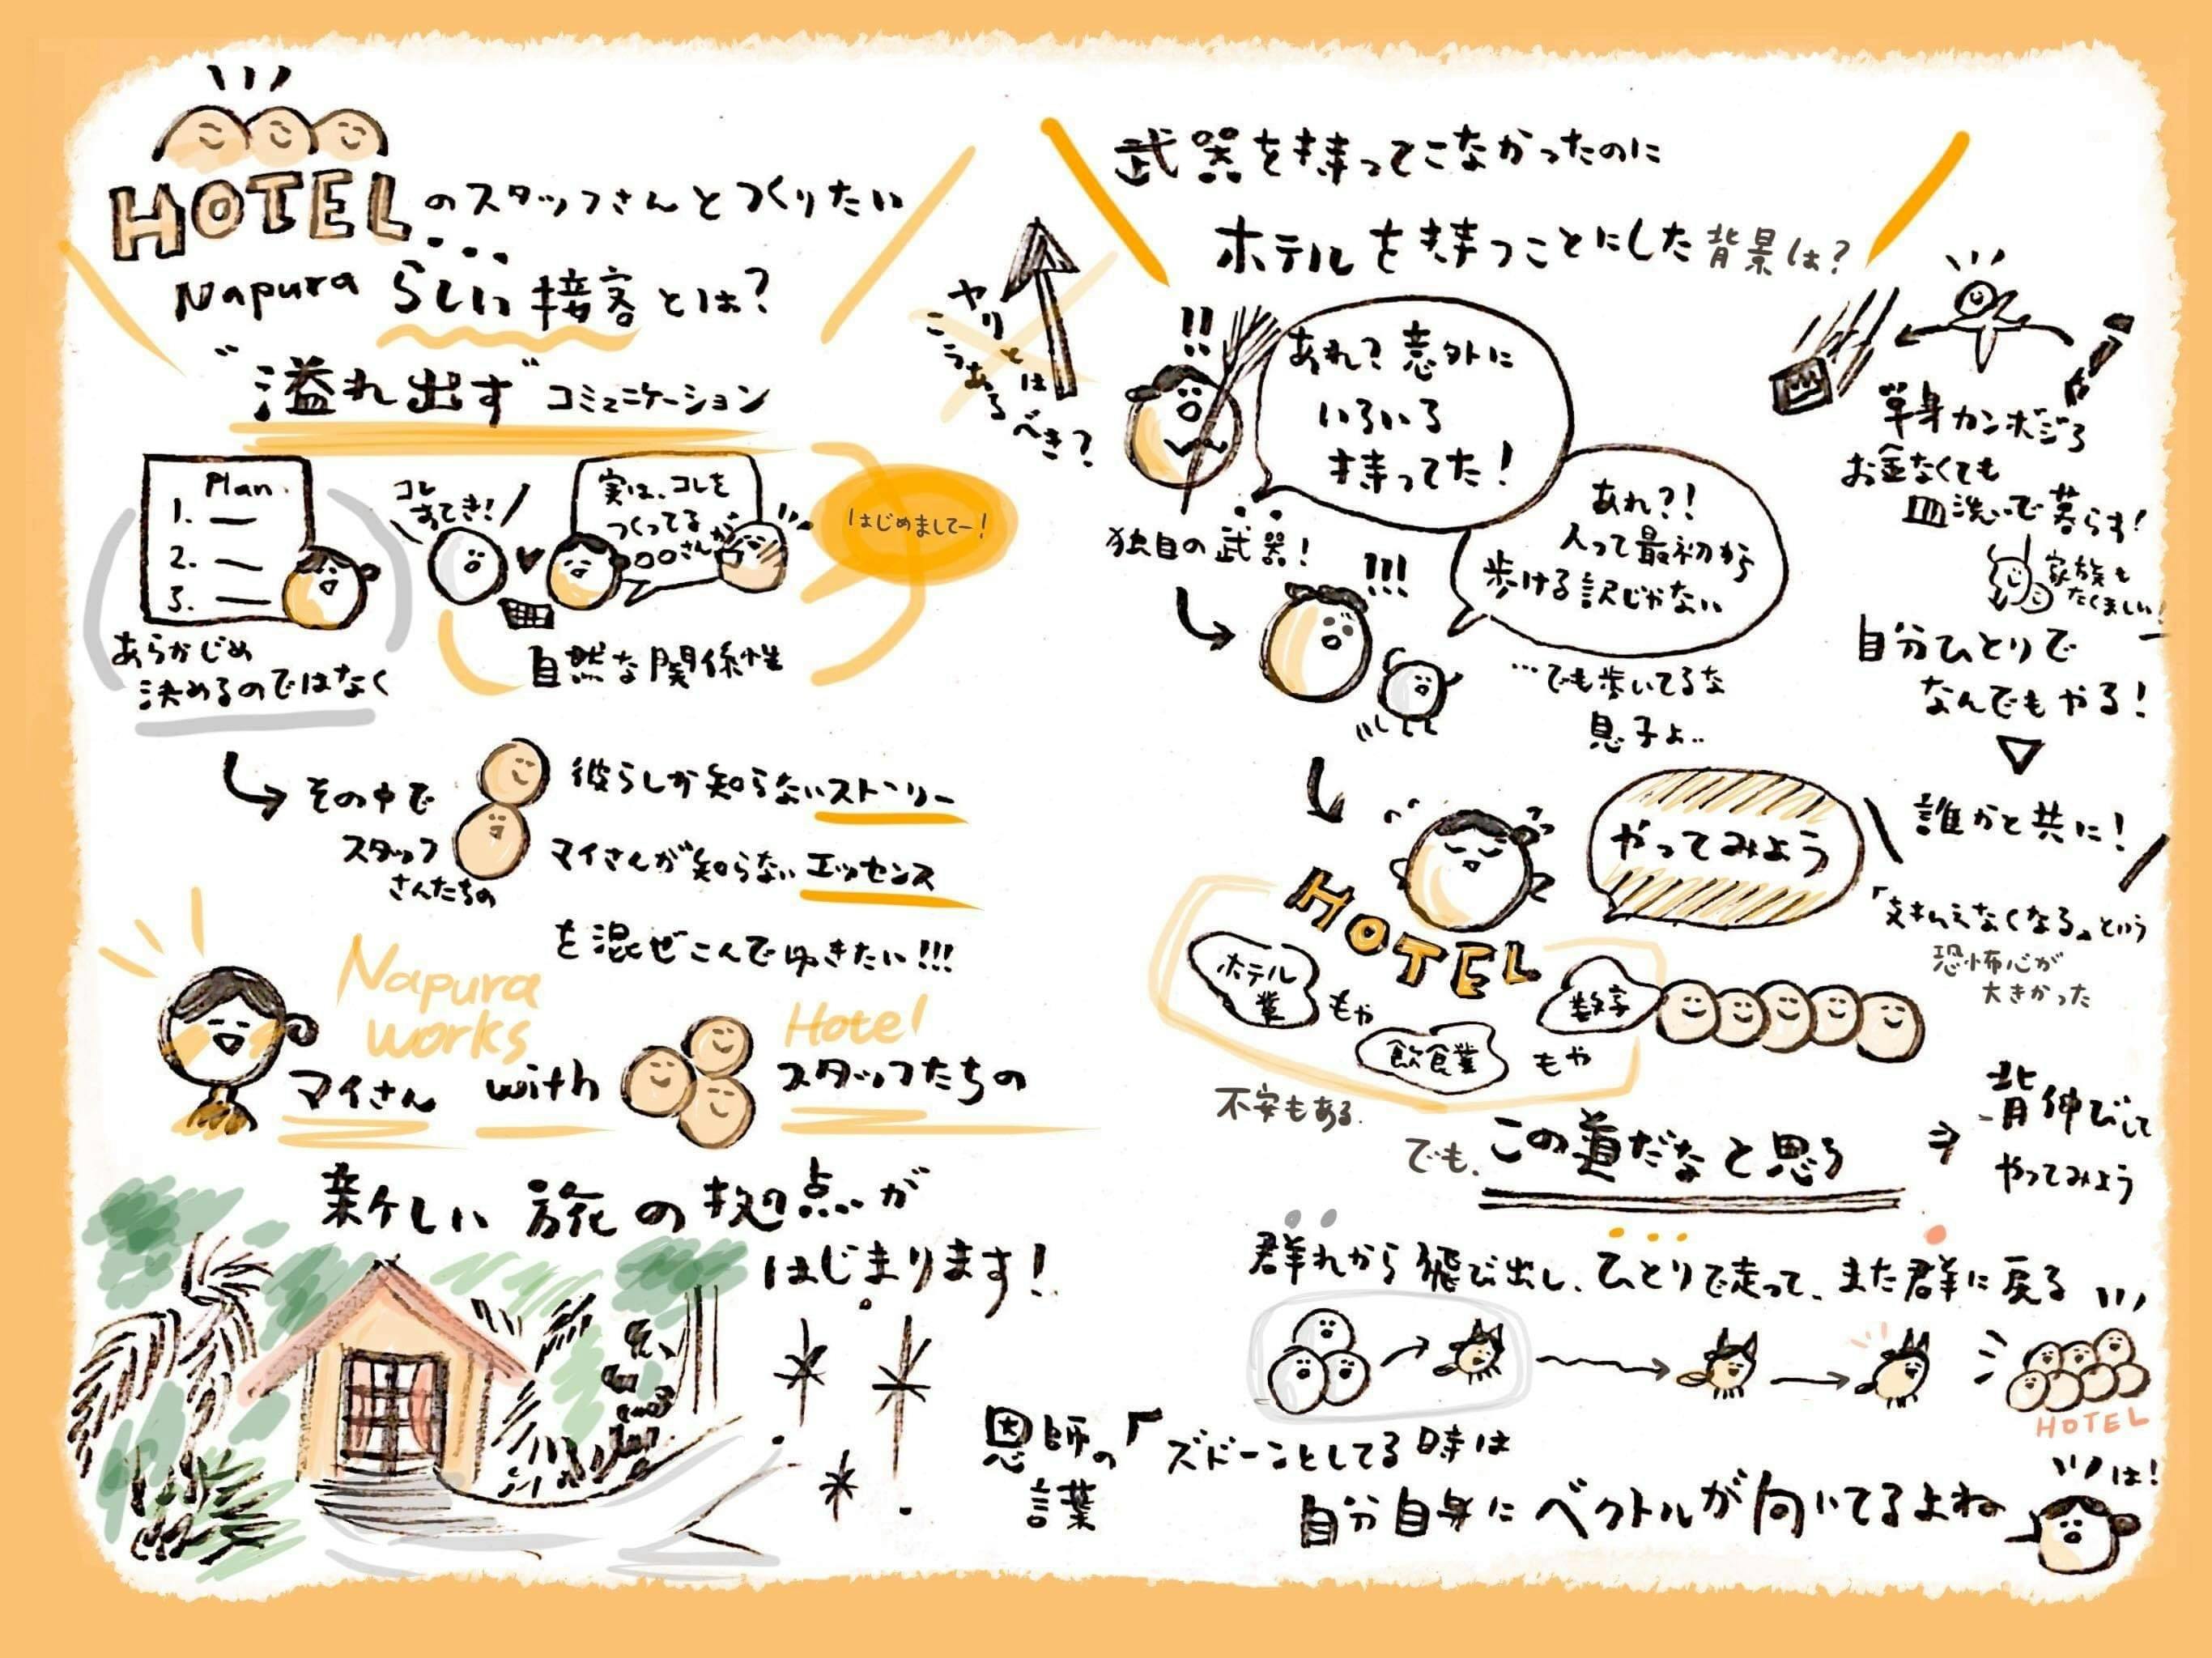 HOTELのスタッフさんとつくりたい
Napura らしい接客とは?
"溢れ出す"コミュニケーション
Plan.
1. ー
2. ー
3. ー
あらかじめ
決めるのではなく
コレ
すてき!
実は、コレを
つくってる
〇〇さんが
はじめましてー!
自然な関係性
その中で
スタッフ
さんたちの
彼らしか知らないストーリー
マイさんが知らないエッセンス
を混ぜこんでゆきたい!!!
Napura
works
Hotel
マイさん with スタッフたちの
新しい旅の拠点が
はじまります!
武器を持ってこなかったのに
ホテルを持つことにした背景は?
ヤリとは
こうある
べき?
!!
あれ?意外に
いろいろ
持ってた!
独自の武器!
!!!
あれ?!
人って最初から
歩ける訳じゃない
…でも歩いてるな
息子よ..
単身カンボジアへ
お金なくても
皿洗いで暮らす!
家族も
たくましい!
自分ひとりで
なんでもやる!
誰かと共に!
「支払えなくなる」という
恐怖心が
大きかった
やってみよう
HOTEL
ホテル
業
もや
飲食業
もや
数字
不安もある.
でも、この道だなと思う
⇒ 背伸びして
やってみよう
群れから飛び出し、ひとりで走って、また群に戻る
HOTEL
恩師の
言葉
「ズドーンとしてる時は
自分自身にベクトルが向いてるよね
は!